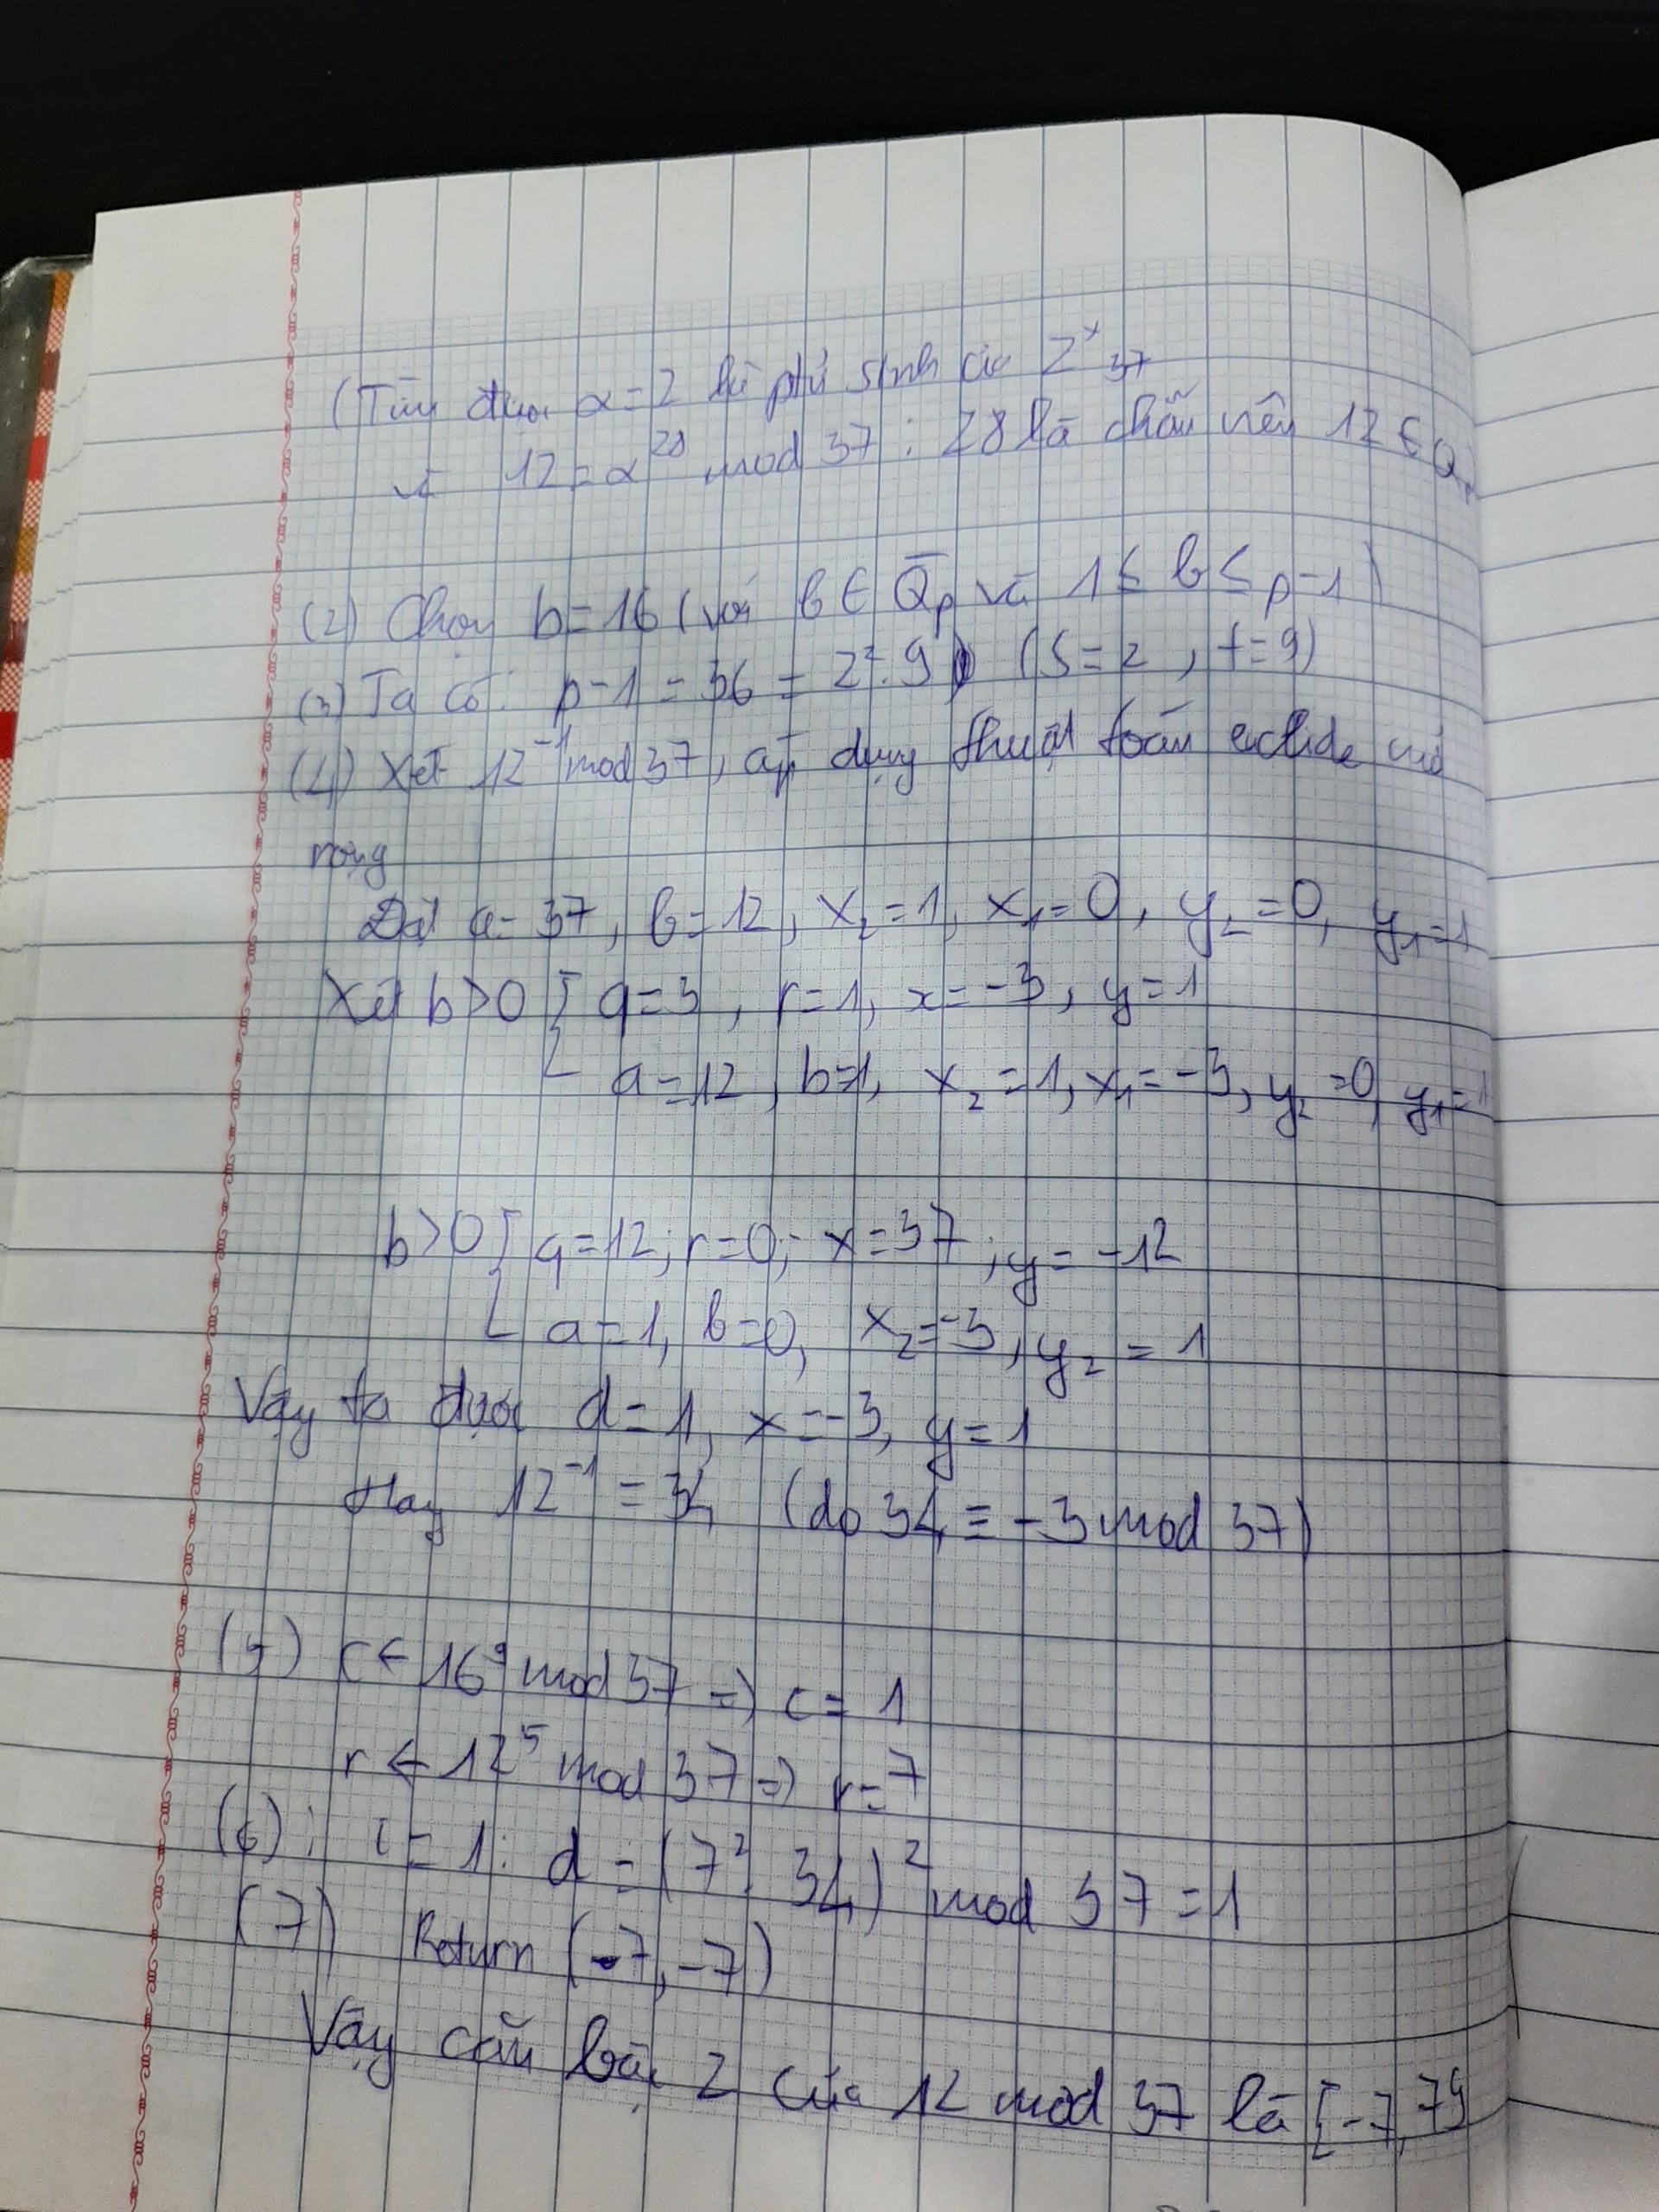 (Tìm được α = 2 là phần sinh của Z*37
vì 12 = α^28 mod 37 : 28 là chẵn nên 12 ∈ Qp
(2) Chọn b = 16 (với b ∈ Q̄p và 1 ≤ b ≤ p-1)
(3) Ta có: p-1 = 36 = 2^2 . 9 (s = 2, t = 9)
(4) Xét 12^-1 mod 37, áp dụng thuật toán euclide mở
rộng
Đặt a = 37, b = 12, x2 = 1, x1 = 0, y2 = 0, y1 = 1
Xét b > 0 { q = 3, r = 1, x = -3, y = 1
a = 12, b = 1, x2 = 1, x1 = -3, y2 = 0, y1 = 1
b > 0 { q = 12; r = 0; x = 37; y = -12
a = 1, b = 0, x2 = -3, y2 = 1
Vậy ta được d = 1, x = -3, y = 1
Hay 12^-1 = 34 (do 34 ≡ -3 mod 37)
(5) c ← 16^9 mod 37 => c = 1
r ← 12^5 mod 37 => r = 7
(6): i = 1: d = (7^2 . 34)^2 mod 37 = 1
(7) Return (-7, -7)
Vậy căn bậc 2 của 12 mod 37 là {-7, 7}